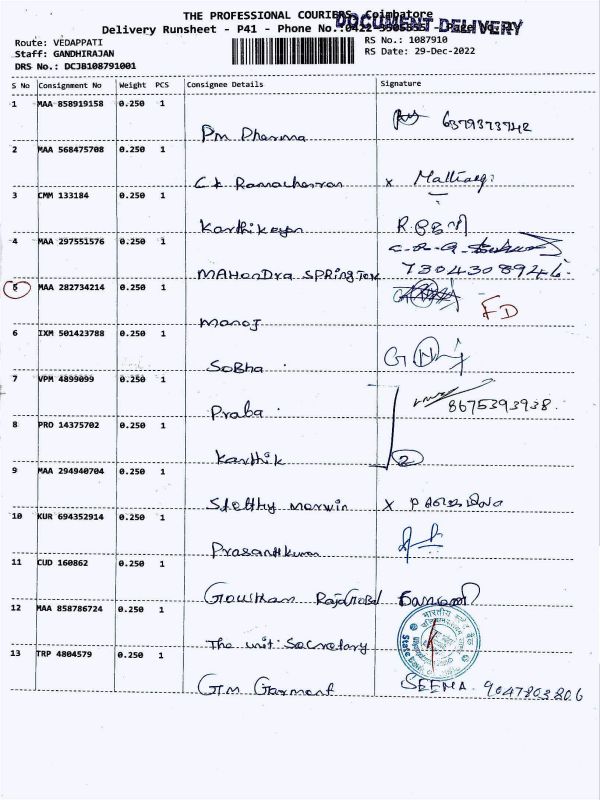 THE PROFESSIONAL COURIERS, Coimbatore
DOCUMENT DELIVERY
Delivery Runsheet - P41 - Phone No.:0422
Route: VEDAPPATI
RS No.: 1087910
Staff: GANDHIRAJAN
RS Date: 29-Dec-2022
DRS No.: DCJB108791001
S No Consignment No Weight PCS Consignee Details Signature
1 MAA 858919158 0.250 1
Pm Dharma 6379373742
2 MAA 568475708 0.250 1
C k Ramachanran x
3 CMM 133184 0.250 1
Karthikeyn
4 MAA 297551576 0.250 1
MAHenDra SPRingTek 7304308946.
5 MAA 282734214 0.250 1
manoj FD
6 IXM 501423788 0.250 1
SoBha
7 VPM 4899099 0.250 1
Praba 8675393938.
8 PRO 14375702 0.250 1
Karthik 2
9 MAA 294940704 0.250 1
Stetthy merwin x
10 KUR 694352914 0.250 1
Prasanthkumar
11 CUD 160862 0.250 1
Gowtham RajaGobal
12 MAA 858786724 0.250 1
The unit Secretary
State Bank
13 TRP 4804579 0.250 1
G.T.M Garment SEEMA. 9047803806